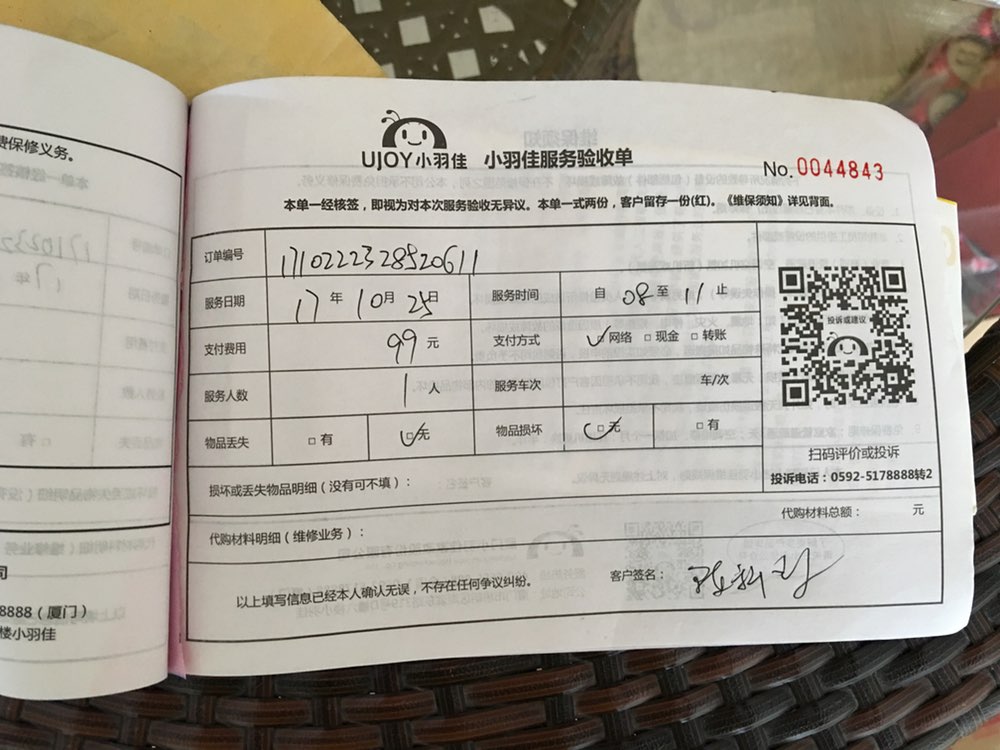 费保修义务。
8888（厦门）
楼小羽佳
UJOY小羽佳 小羽佳服务验收单
No.0044843
本单一经核签，即视为对本次服务验收无异议。本单一式两份，客户留存一份(红)。《维保须知》详见背面。
订单编号 1710222328520611
服务日期 17年10月25日 服务时间 自08至11止
支付费用 99元 支付方式 ☑网络 □现金 □转账
服务人数 1人 服务车次 车/次
物品丢失 □有 ☑无 物品损坏 ☑无 □有
投诉或建议
扫码评价或投诉
投诉电话：0592-5178888转2
损坏或丢失物品明细（没有可不填）：
代购材料总额： 元
代购材料明细（维修业务）：
以上填写信息已经本人确认无误，不存在任何争议纠纷。
客户签名：